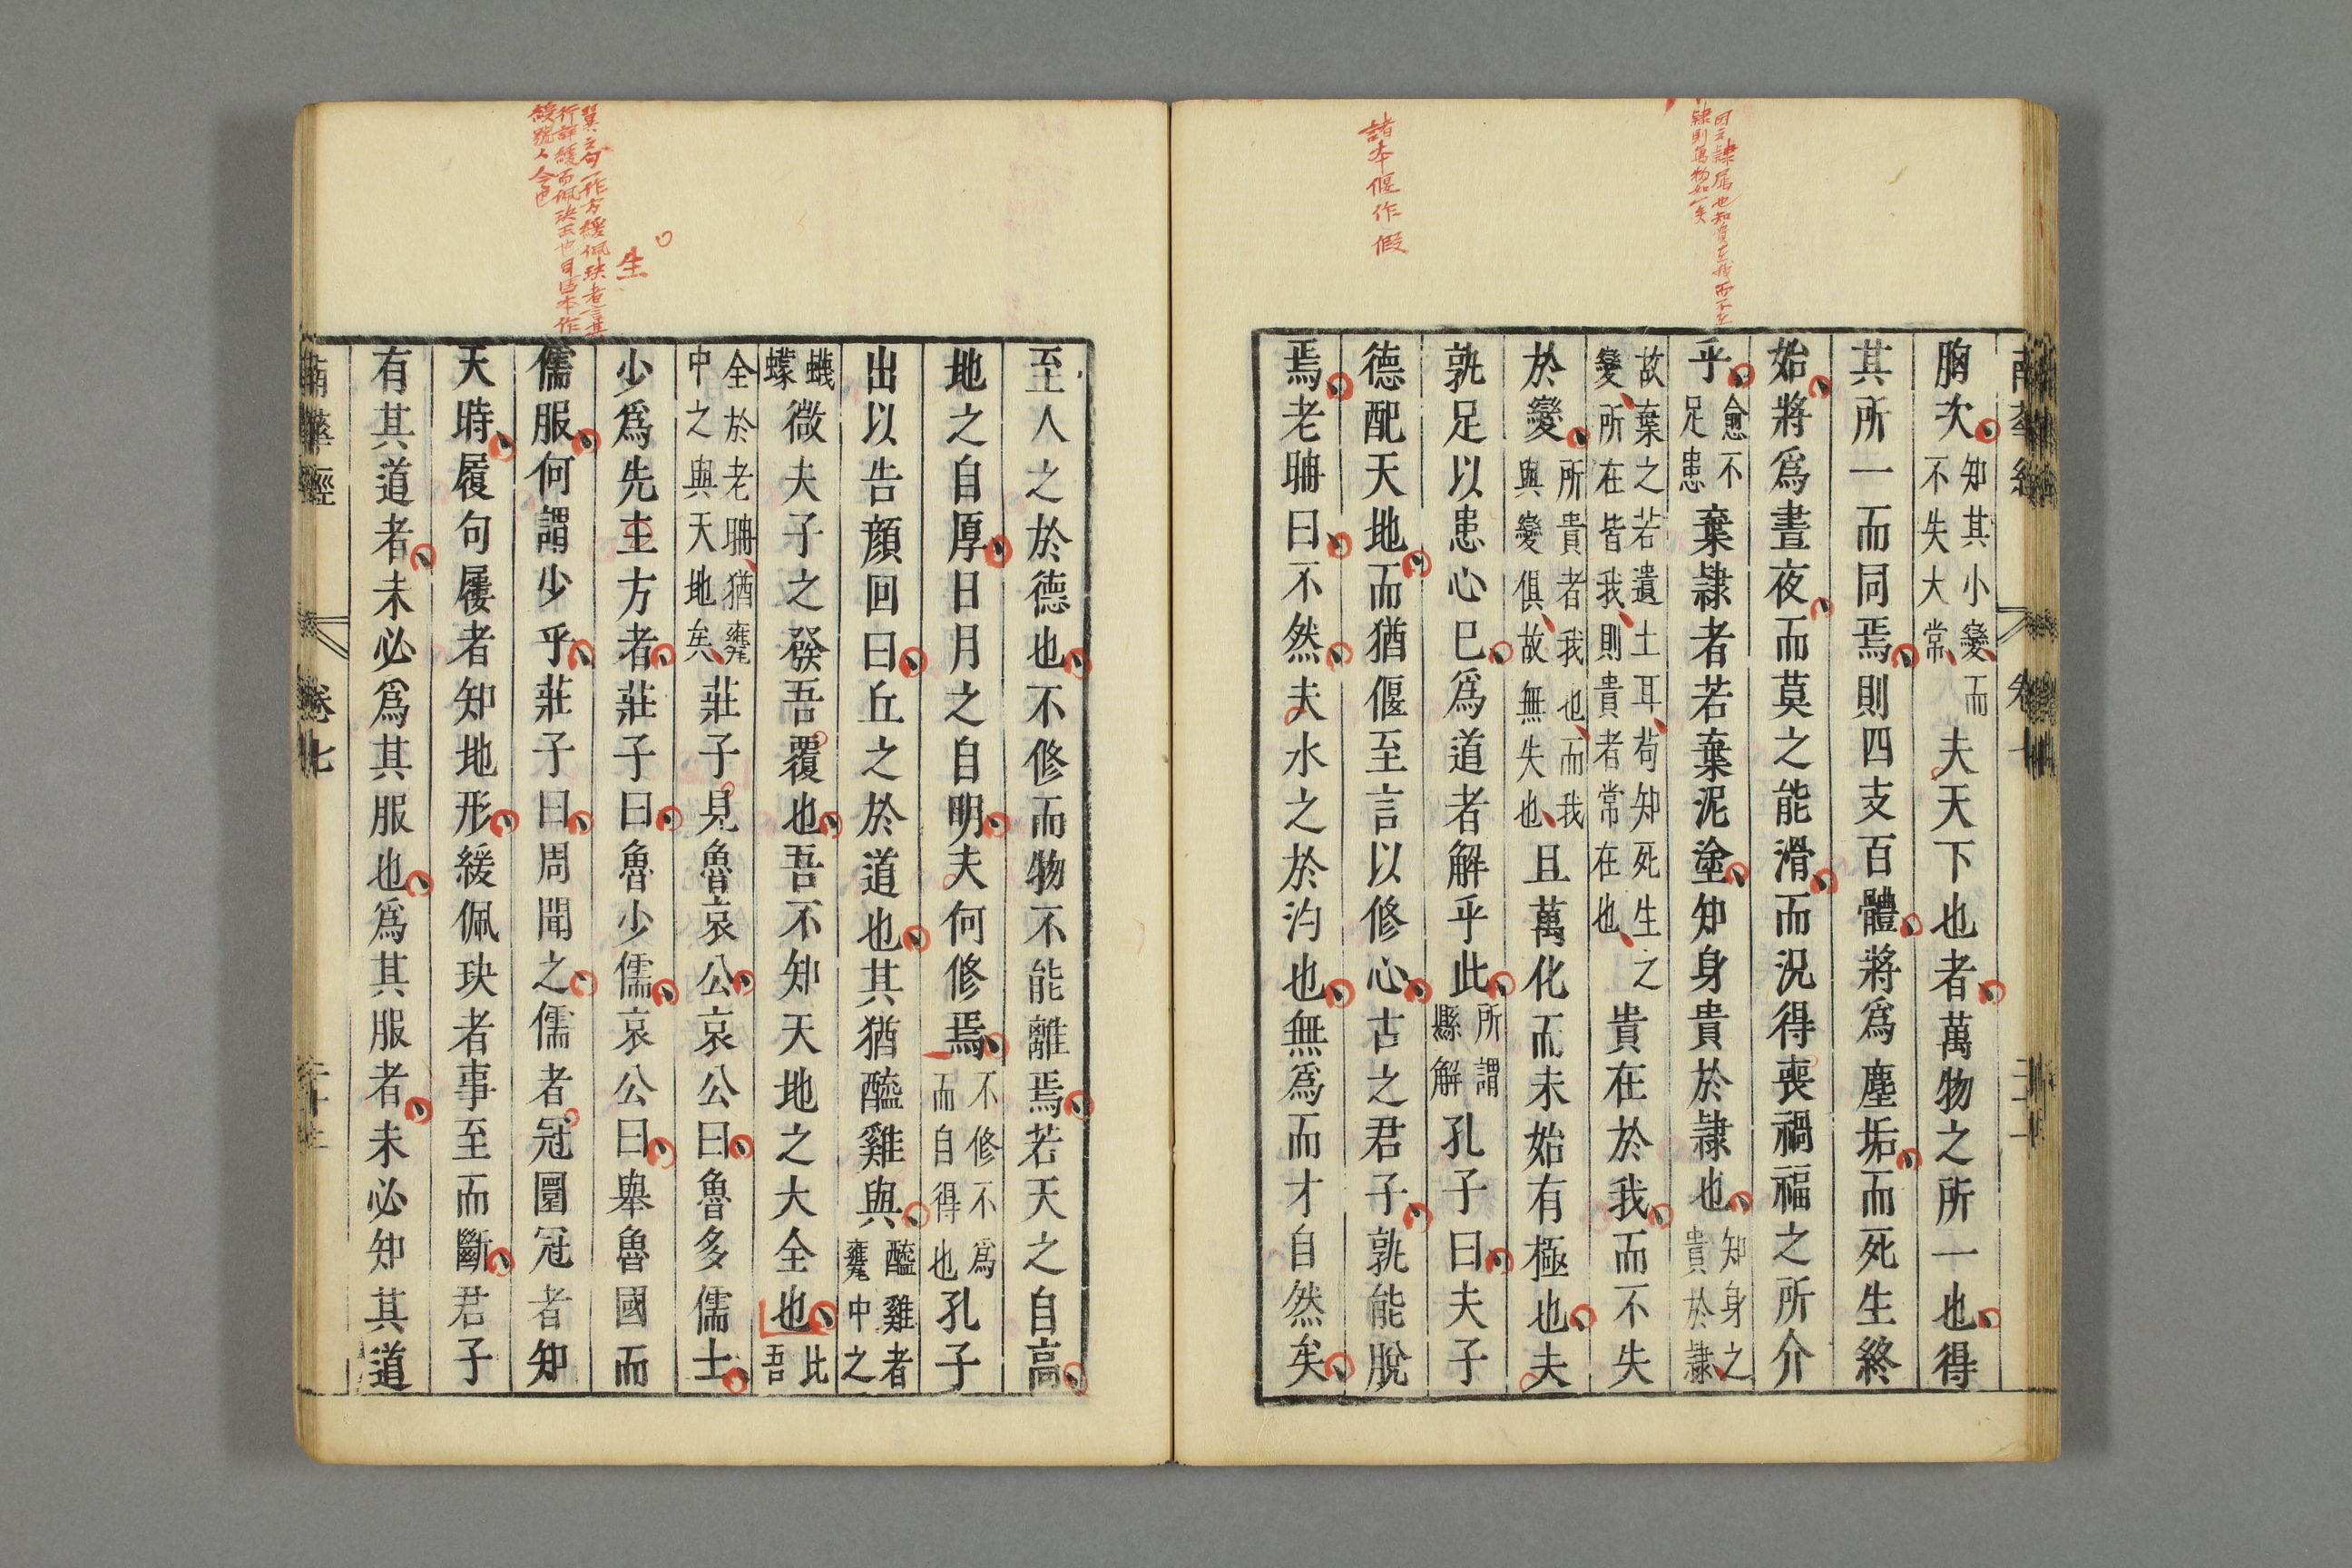 因云隷屬也知貴在我而不在
隷則萬物如一矣
諸本偃作假
胸次知其小變而不失大常夫天下也者萬物之所一也得
其所一而同焉則四支百體將爲塵垢而死生終
始將爲晝夜而莫之能滑而況得喪禍福之所介
乎愈不足患棄隷者若棄泥塗知身貴於隷也知身之貴於隷
故棄之若遺土耳苟知死生之變所在皆我則貴者常在也貴在於我而不失
於變所貴者我也而我與變俱故無失也且萬化而未始有極也夫
孰足以患心已爲道者解乎此所謂縣解孔子曰夫子
德配天地而猶偃至言以修心古之君子孰能脫
焉老聃曰不然夫水之於汋也無爲而才自然矣
生
至人之於德也不修而物不能離焉若天之自高
地之自厚日月之自明夫何修焉不修不爲而自得也孔子
出以告顏回曰丘之於道也其猶醯雞與醯雞者甕中之
蠛蠓微夫子之發吾覆也吾不知天地之大全也比吾
全於老聃猶甕中之與天地矣莊子見魯哀公哀公曰魯多儒士
少爲先主方者莊子曰魯少儒哀公曰舉魯國而
儒服何謂少乎莊子曰周聞之儒者冠圜冠者知
天時履句屨者知地形緩佩玦者事至而斷君子
有其道者未必爲其服也爲其服者未必知其道
南華經 卷七